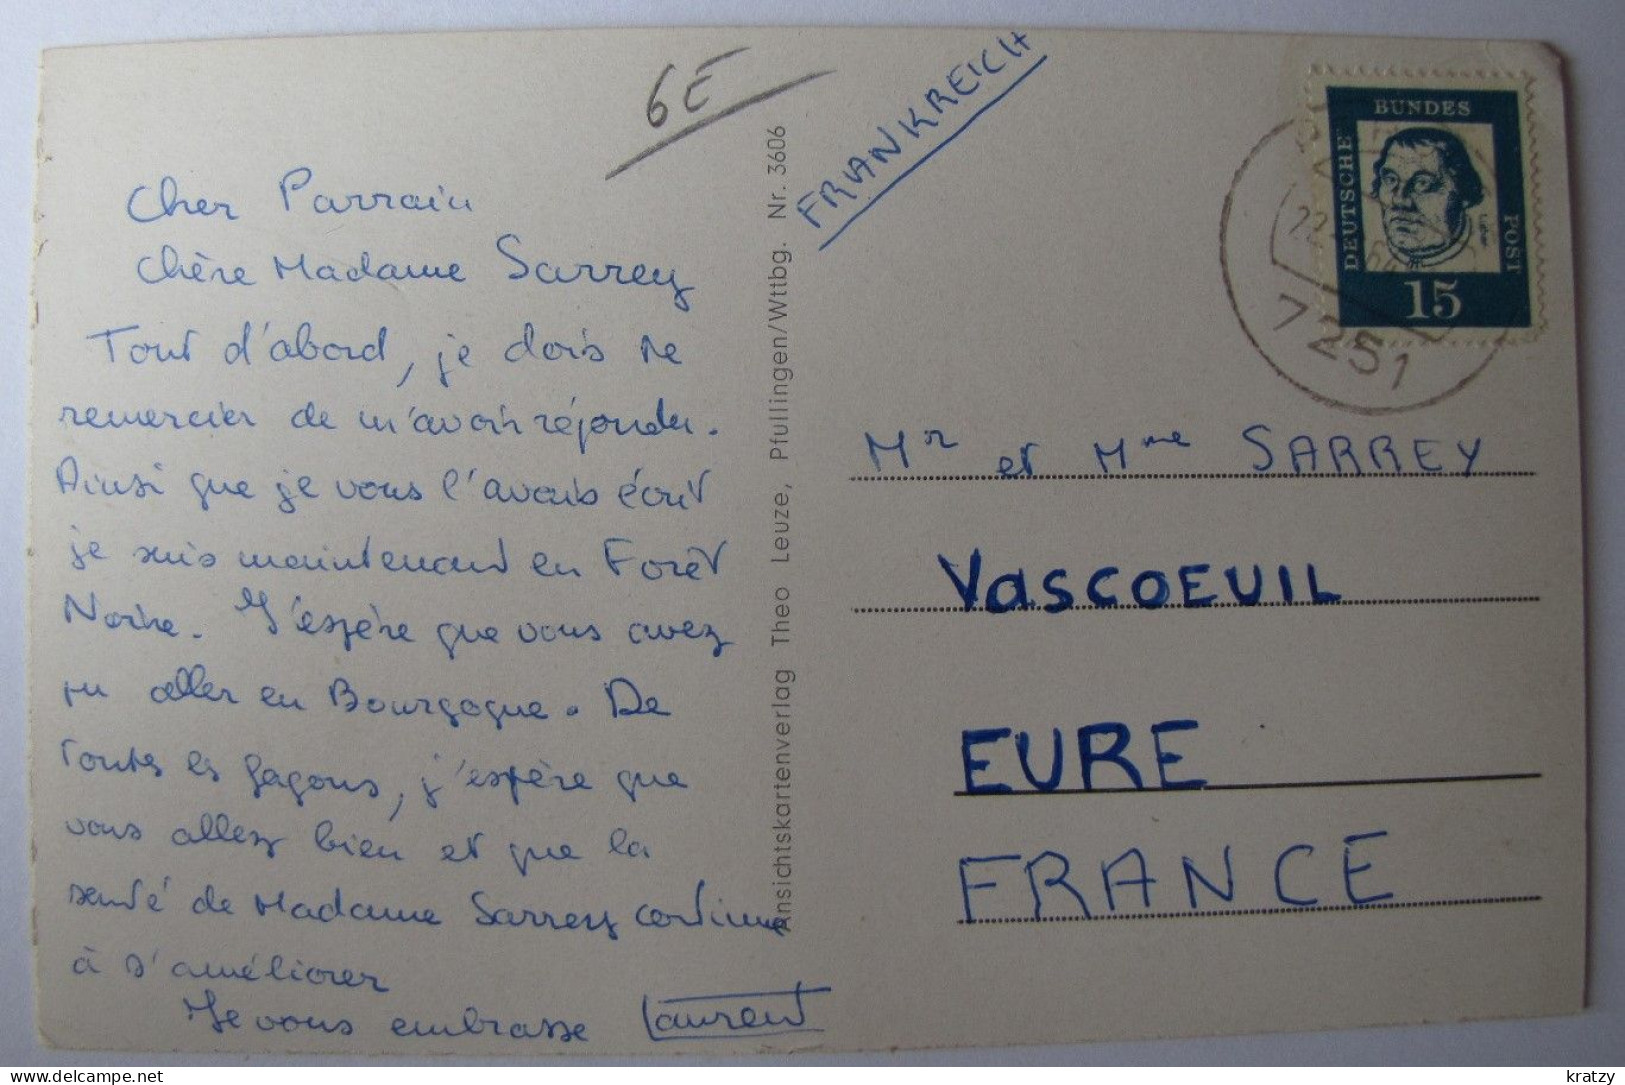 6E
FRANKREICH
Cher Parrain
Chère Madame Sarrey
Tout d'abord, je dois te
remercier de m'avoir répondu.
Ainsi que je vous l'avais écrit
je suis maintenant en Forêt
Noire. J'espère que vous avez
pu aller en Bourgogne. De
toutes les façons, j'espère que
vous allez bien et que la
santé de Madame Sarrey continue
à s'améliorer
Je vous embrasse Laurent
Ansichtskartenverlag Theo Leuze, Pfullingen/Wttbg. Nr. 3606
DEUTSCHE BUNDES POST
Luther
15
7251
Mr et Mme SARREY
VASCOEUIL
EURE
FRANCE
kratzy